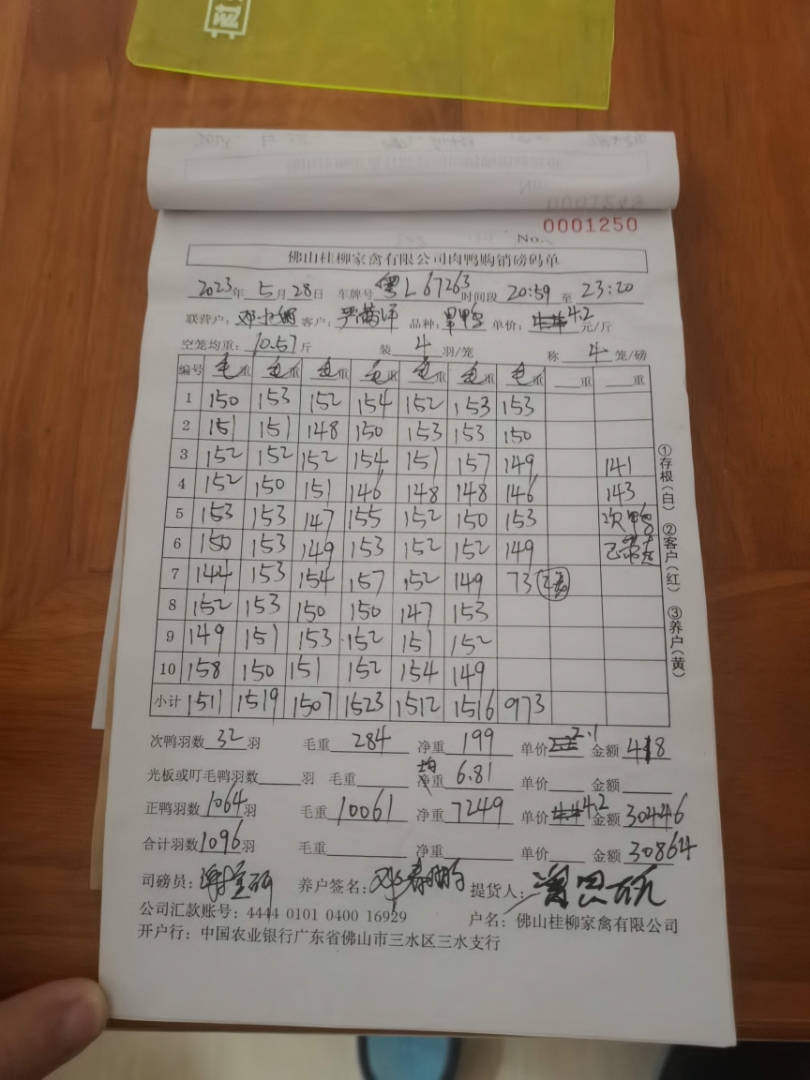 0001250
No.
佛山桂柳家禽有限公司肉鸭购销磅码单
2023年 5月 28日 车牌号 粤L67263 时间段 20:59 至 23:20
联营户: 邓小 客户: 品种: 单价: 4.2 元/斤
空笼均重: 10.57 斤 装 4 羽/笼 称 4 笼/磅
编号 毛重 毛重 毛重 毛重 毛重 毛重 毛重 重 重
1 150 153 152 154 152 153 153
2 151 151 148 150 153 153 150
3 152 152 152 154 151 157 149 141
4 152 150 151 146 148 148 146 143
5 153 153 147 155 152 150 153 次鸭
6 150 153 149 153 152 152 149
7 144 153 154 157 152 149 73
8 152 153 150 150 147 153
9 149 151 153 152 151 152
10 158 150 151 152 154 149
小计 1511 1519 1507 1523 1512 1516 973
①存根(白) ②客户(红) ③养户(黄)
次鸭羽数 32 羽 毛重 284 净重 199 单价 2.1 金额 418
光板或叮毛鸭羽数 羽 毛重 均重 6.81 单价 金额
正鸭羽数 1064 羽 毛重 10061 净重 7249 单价 4.2 金额 30446
合计羽数 1096 羽 毛重 净重 单价 金额 30864
司磅员: 养户签名: 提货人:
公司汇款账号: 4444 0101 0400 16929 户名: 佛山桂柳家禽有限公司
开户行: 中国农业银行广东省佛山市三水区三水支行